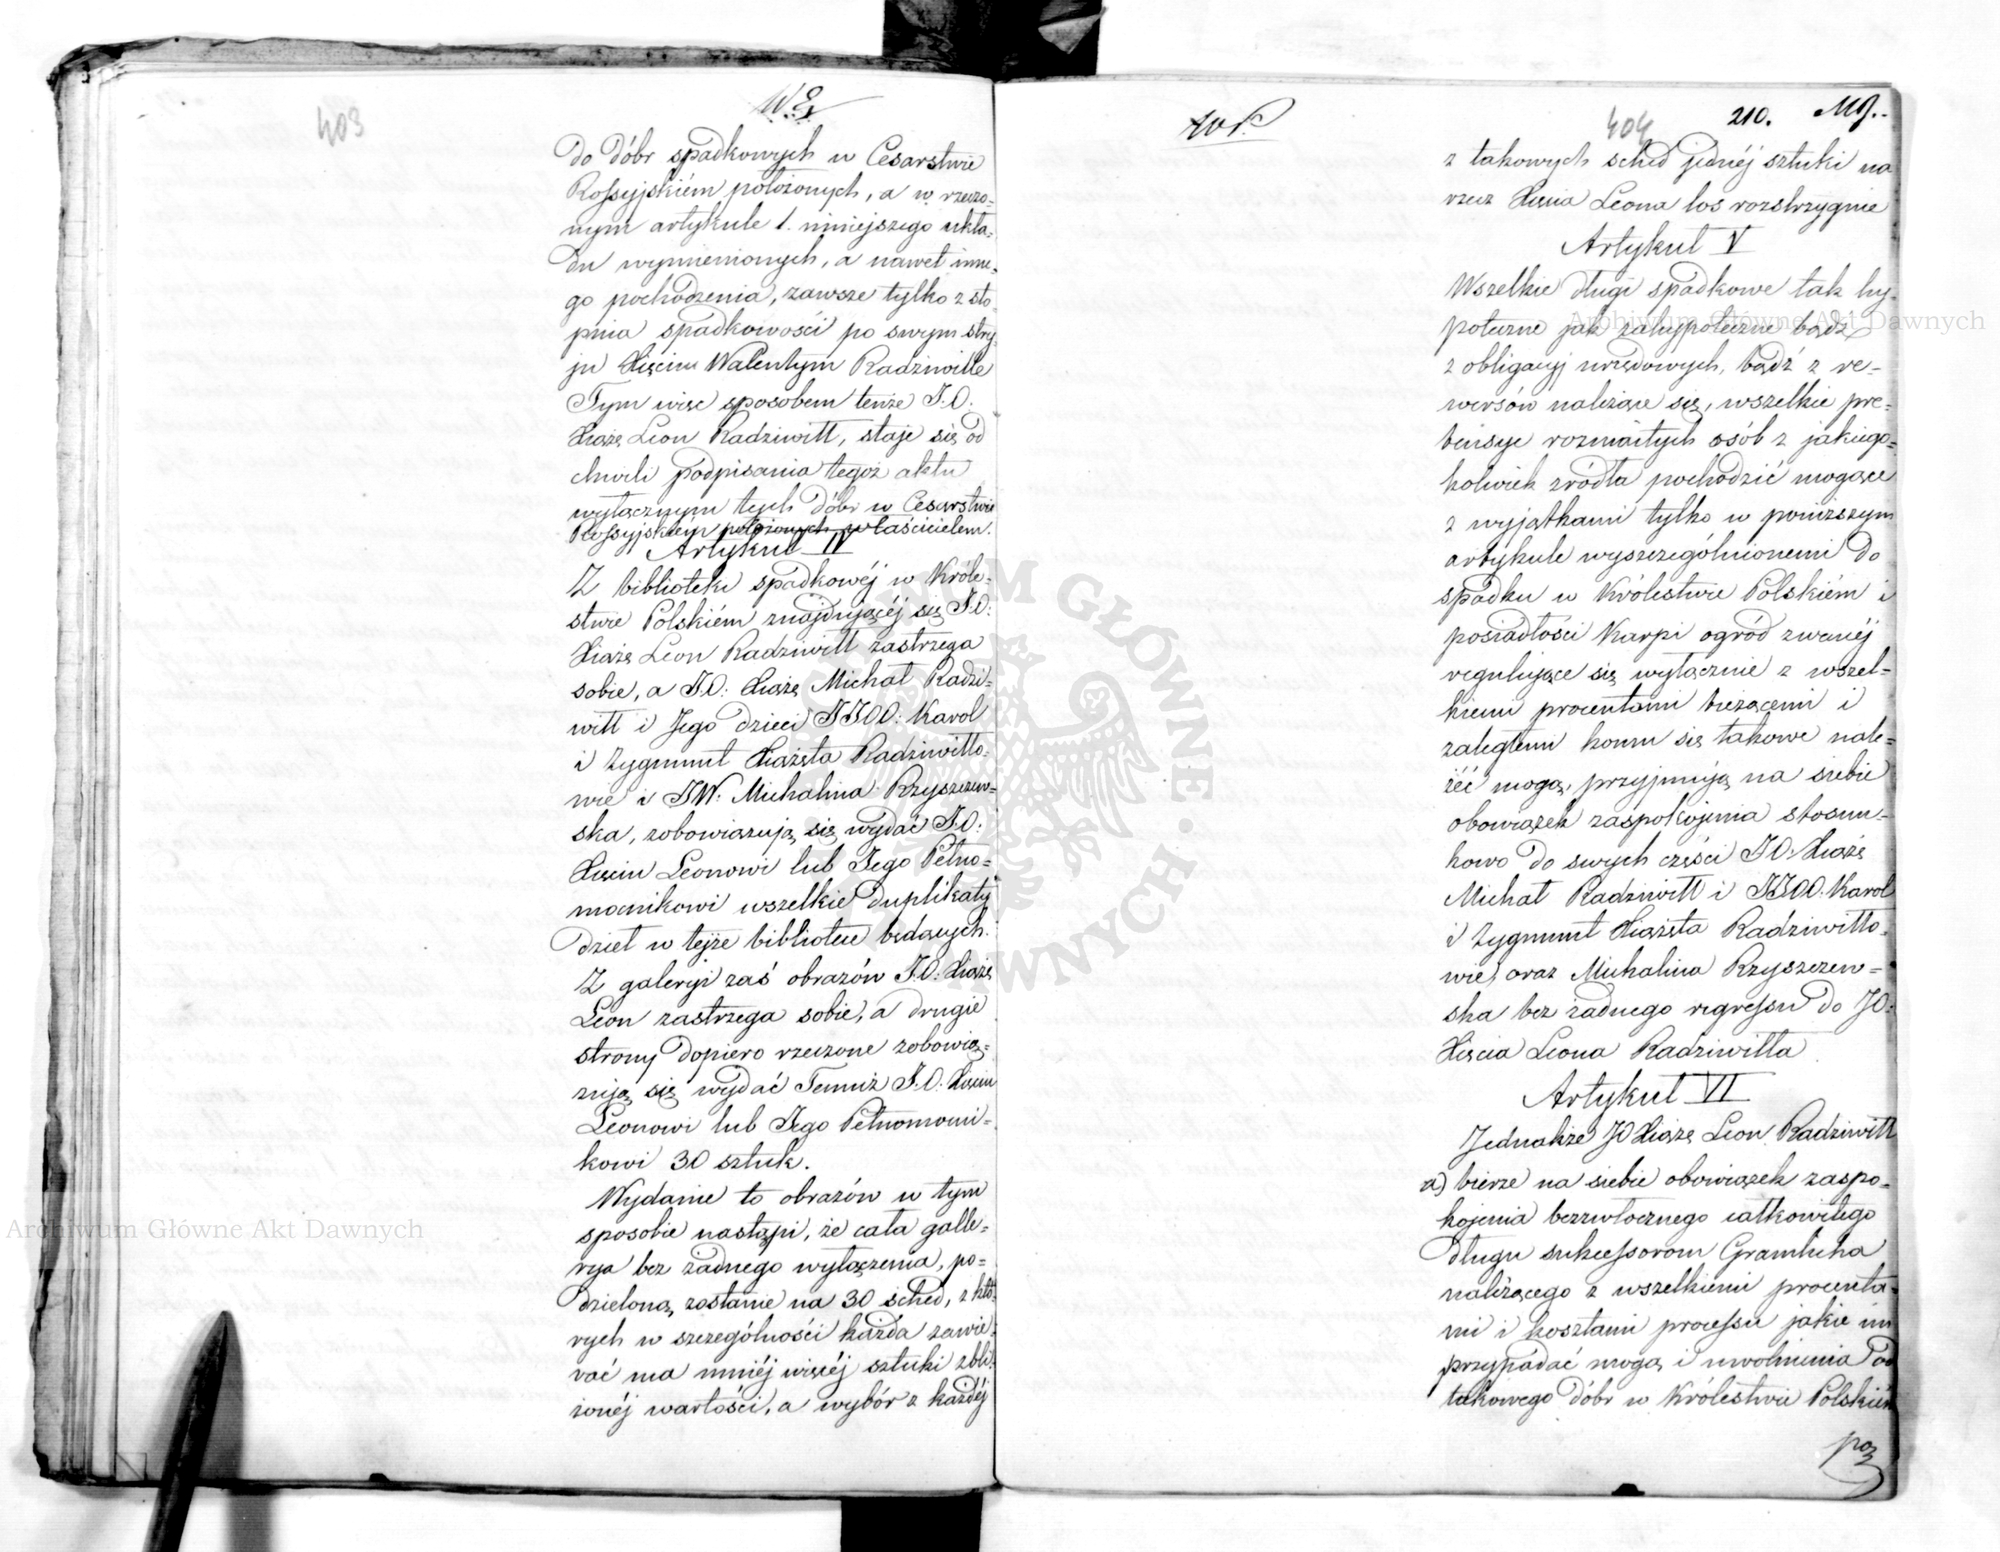 403
do dóbr spadkowych w Cesarstwie
Rossyjskiém położonych, a w rzeczo-
nym artykule 1. niniejszego ukła-
du wymienionych, a nawet inne-
go pochodzenia, zawsze tylko z sto
pnia spadkowości po swym stry-
ju Xięciu Walentym Radziwille
Tym więc sposobem tenże J.O.
Xiążę Leon Radziwiłł, staje się od
chwili podpisania tegoż aktu
wyłącznym tych dóbr w Cesarstwie
Rossyjskiem położonych właścicielem.
Artykuł IV
Z biblioteki spadkowéj w Króle-
stwie Polskiém znajdującéj się J.O:
Xiążę Leon Radziwiłł zastrzega
sobie, a J.O: Xiążę Michał Radzi-
wiłł i Jego dzieci JJOO: Karol
i Zygmunt Xiążęta Radziwiłło-
wie i JW: Michalina Rzyszczew-
ska, zobowiązują się wydać J.O:
Xięciu Leonowi lub Jego Pełno-
mocnikowi wszelkie duplikaty
dzieł w tejże bibliotece będących.
Z galeryi zaś obrazów J.O: Xiążę
Leon zastrzega sobie, a drugie
strony dopiero rzeczone zobowią-
zują się wydać Temuż J.O. Xięciu
Leonowi lub Jego Pełnomocni-
kowi 30 sztuk.
Wydanie to obrazów w tym
sposobie nastąpi, że cała galle-
rya bez żadnego wyłączenia, po-
dzieloną zostanie na 30 sched, z któ-
rych w szczególności każda zawie-
rać ma mniéj więcéj sztuki zbli-
żonéj wartości, a wybór z każdéj
404 210.
z takowych sched jednéj sztuki na
rzecz Xięcia Leona los rozstrzygnie
Artykuł V
Wszelkie długi spadkowe tak hy-
poteczne jak zahypoteczne bądź
z obligacyj urzędowych, bądź z re-
wersów należące się, wszelkie pre-
tensye rozmaitych osób z jakiego-
kolwiek źródła pochodzić mogące
z wyjątkami tylko w poniższym
artykule wyszczególnionemi do
spadku w Królestwie Polskiém i
posiadłości Karpi ogród zwanéj
regulujące się wyłącznie z wszel-
kiemi procentami bieżącemi i
zaległemi komu się takowe nale-
żéć mogą, przyjmują na siebie
obowiązek zaspokojenia stosun-
kowo do swych części J.O: Xiążę
Michał Radziwiłł i JJOO. Karol
i Zygmunt Xiążęta Radziwiłło-
wie, oraz Michalina Rzyszczew-
ska bez żadnego regressu do JO:
Xięcia Leona Radziwiłła.
Artykuł VI
Jednakże JO Xiążę Leon Radziwiłł
a) bierze na siebie obowiązek zaspo-
kojenia bezzwłocznego całkowitego
długu sukcessorom Gramlicha
należącego z wszelkiemi procenta-
mi i kosztami processu jakie im
przypadać mogą i uwolnienia od
takowego dóbr w Królestwie Polskiém
po
Archiwum Główne Akt Dawnych
Archiwum Główne Akt Dawnych
ARCHIWUM GŁÓWNE AKT DAWNYCH